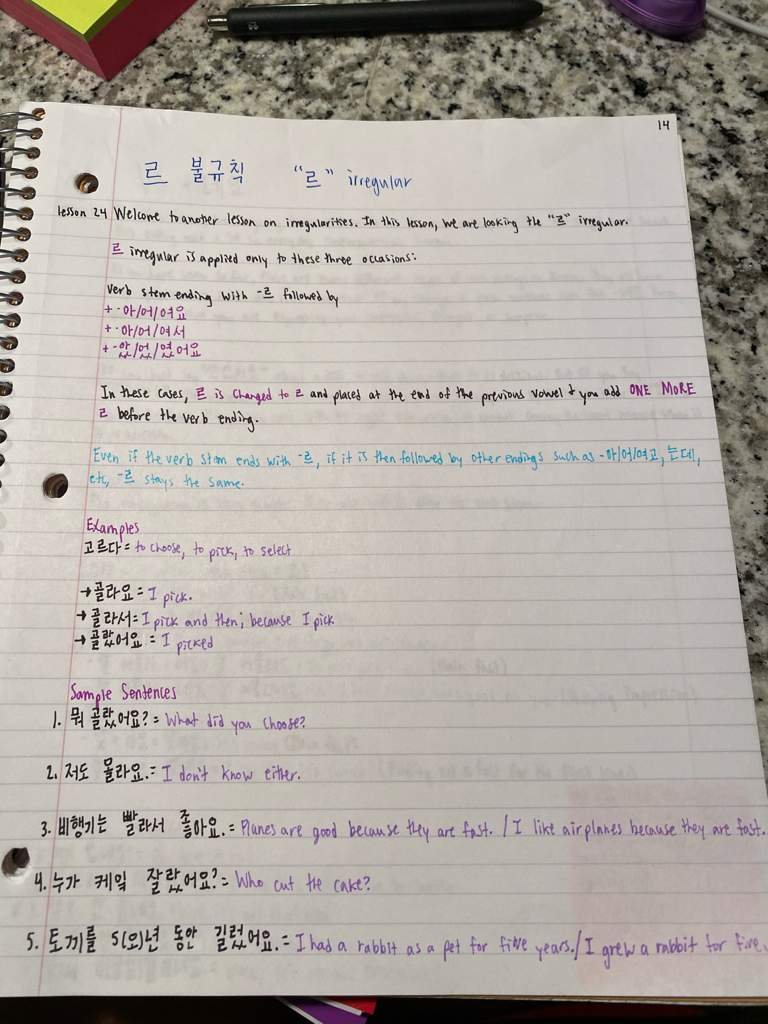 14
르 불규칙 "르" irregular
lesson 24 Welcome to another lesson on irregularities. In this lesson, we are looking the "르" irregular.
르 irregular is applied only to these three occasions:
Verb stem ending with -르 followed by
+ -아/어/여요
+ -아/어/여서
+ -았/었/였어요
In these cases, 르 is changed to ㄹ and placed at the end of the previous vowel + you add ONE MORE
ㄹ before the verb ending.
Even if the verb stem ends with -르, if it is then followed by other endings such as -아/어/여고, 는데,
etc, -르 stays the same.
Examples
고르다 = to choose, to pick, to select
→ 골라요 = I pick.
→ 골라서 = I pick and then; because I pick
→ 골랐어요 = I picked
Sample Sentences
1. 뭐 골랐어요? = What did you choose?
2. 저도 몰라요. = I don't know either.
3. 비행기는 빨라서 좋아요. = Planes are good because they are fast. / I like airplanes because they are fast.
4. 누가 케잌 잘랐어요? = Who cut the cake?
5. 토끼를 5(오)년 동안 길렀어요. = I had a rabbit as a pet for five years. / I grew a rabbit for five